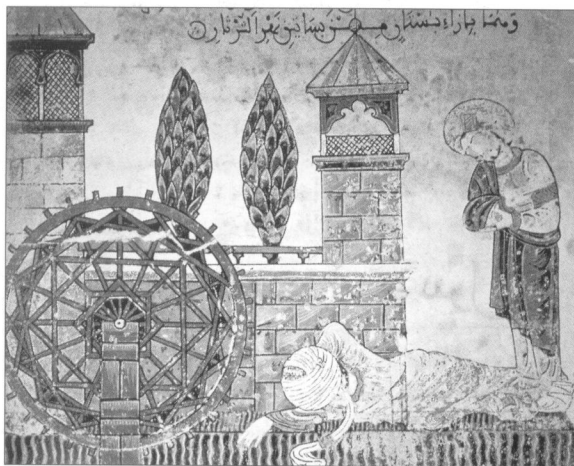 وهما بازاء بستان من بساتين نهر الثرثار